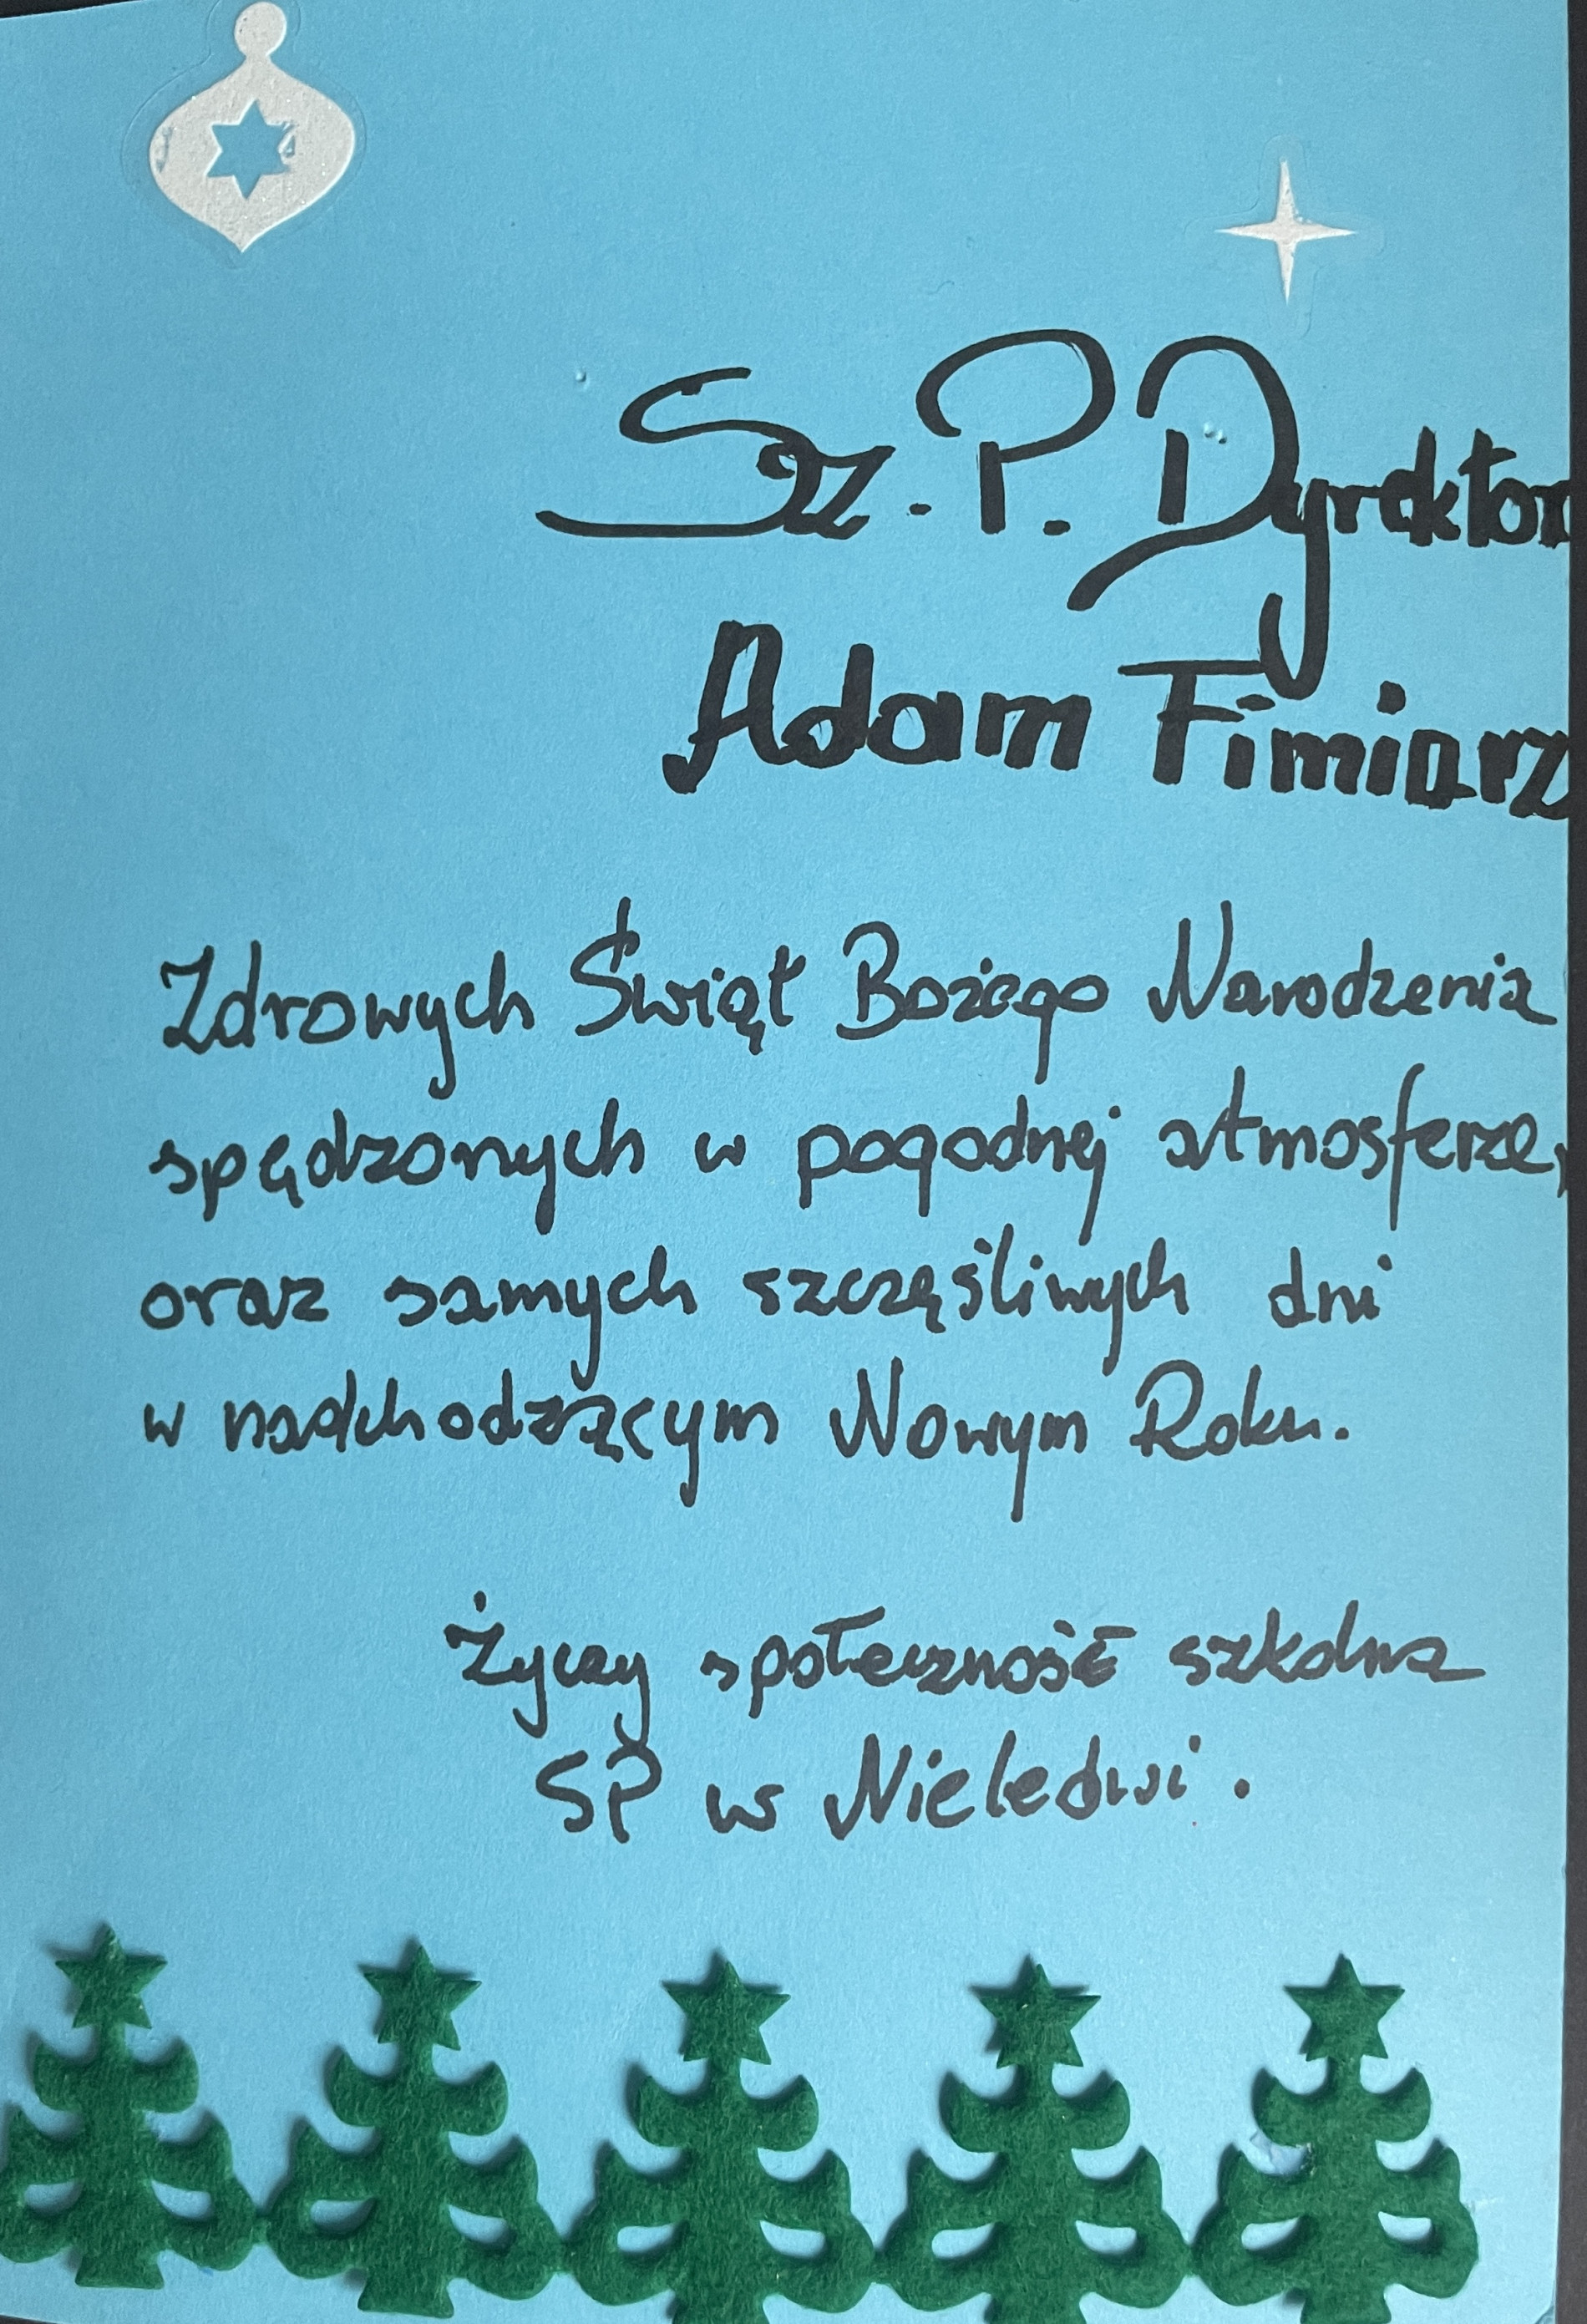 Sz. P. Dyrektor
Adam Fimiarz
Zdrowych Świąt Bożego Narodzenia
spędzonych w pogodnej atmosferze,
oraz samych szczęśliwych dni
w nadchodzącym Nowym Roku.
Życzy społeczność szkolna
SP w Nieledwi.